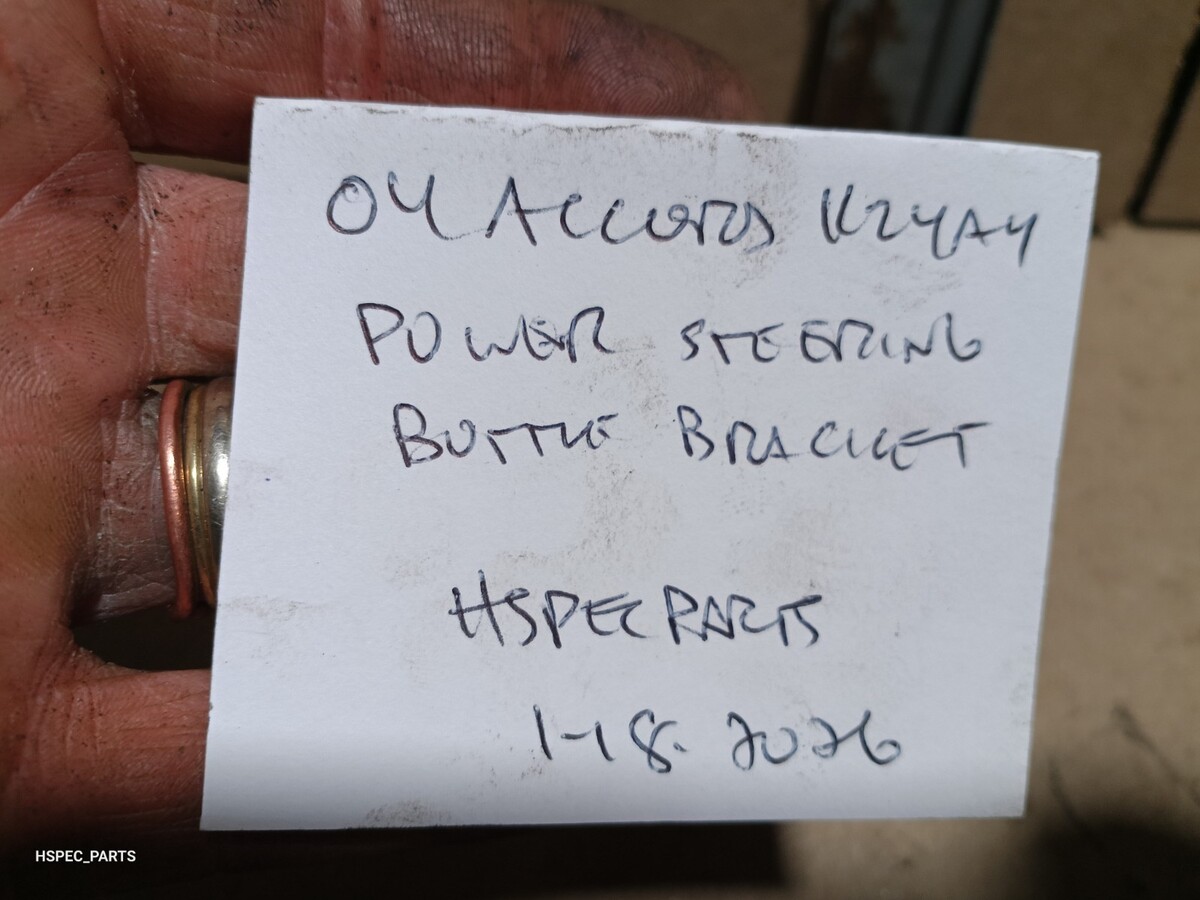 04 ACCORD K24A4
POWER STEERING
BOTTLE BRACKET
HSPEC PARTS
1-18-2026
HSPEC_PARTS